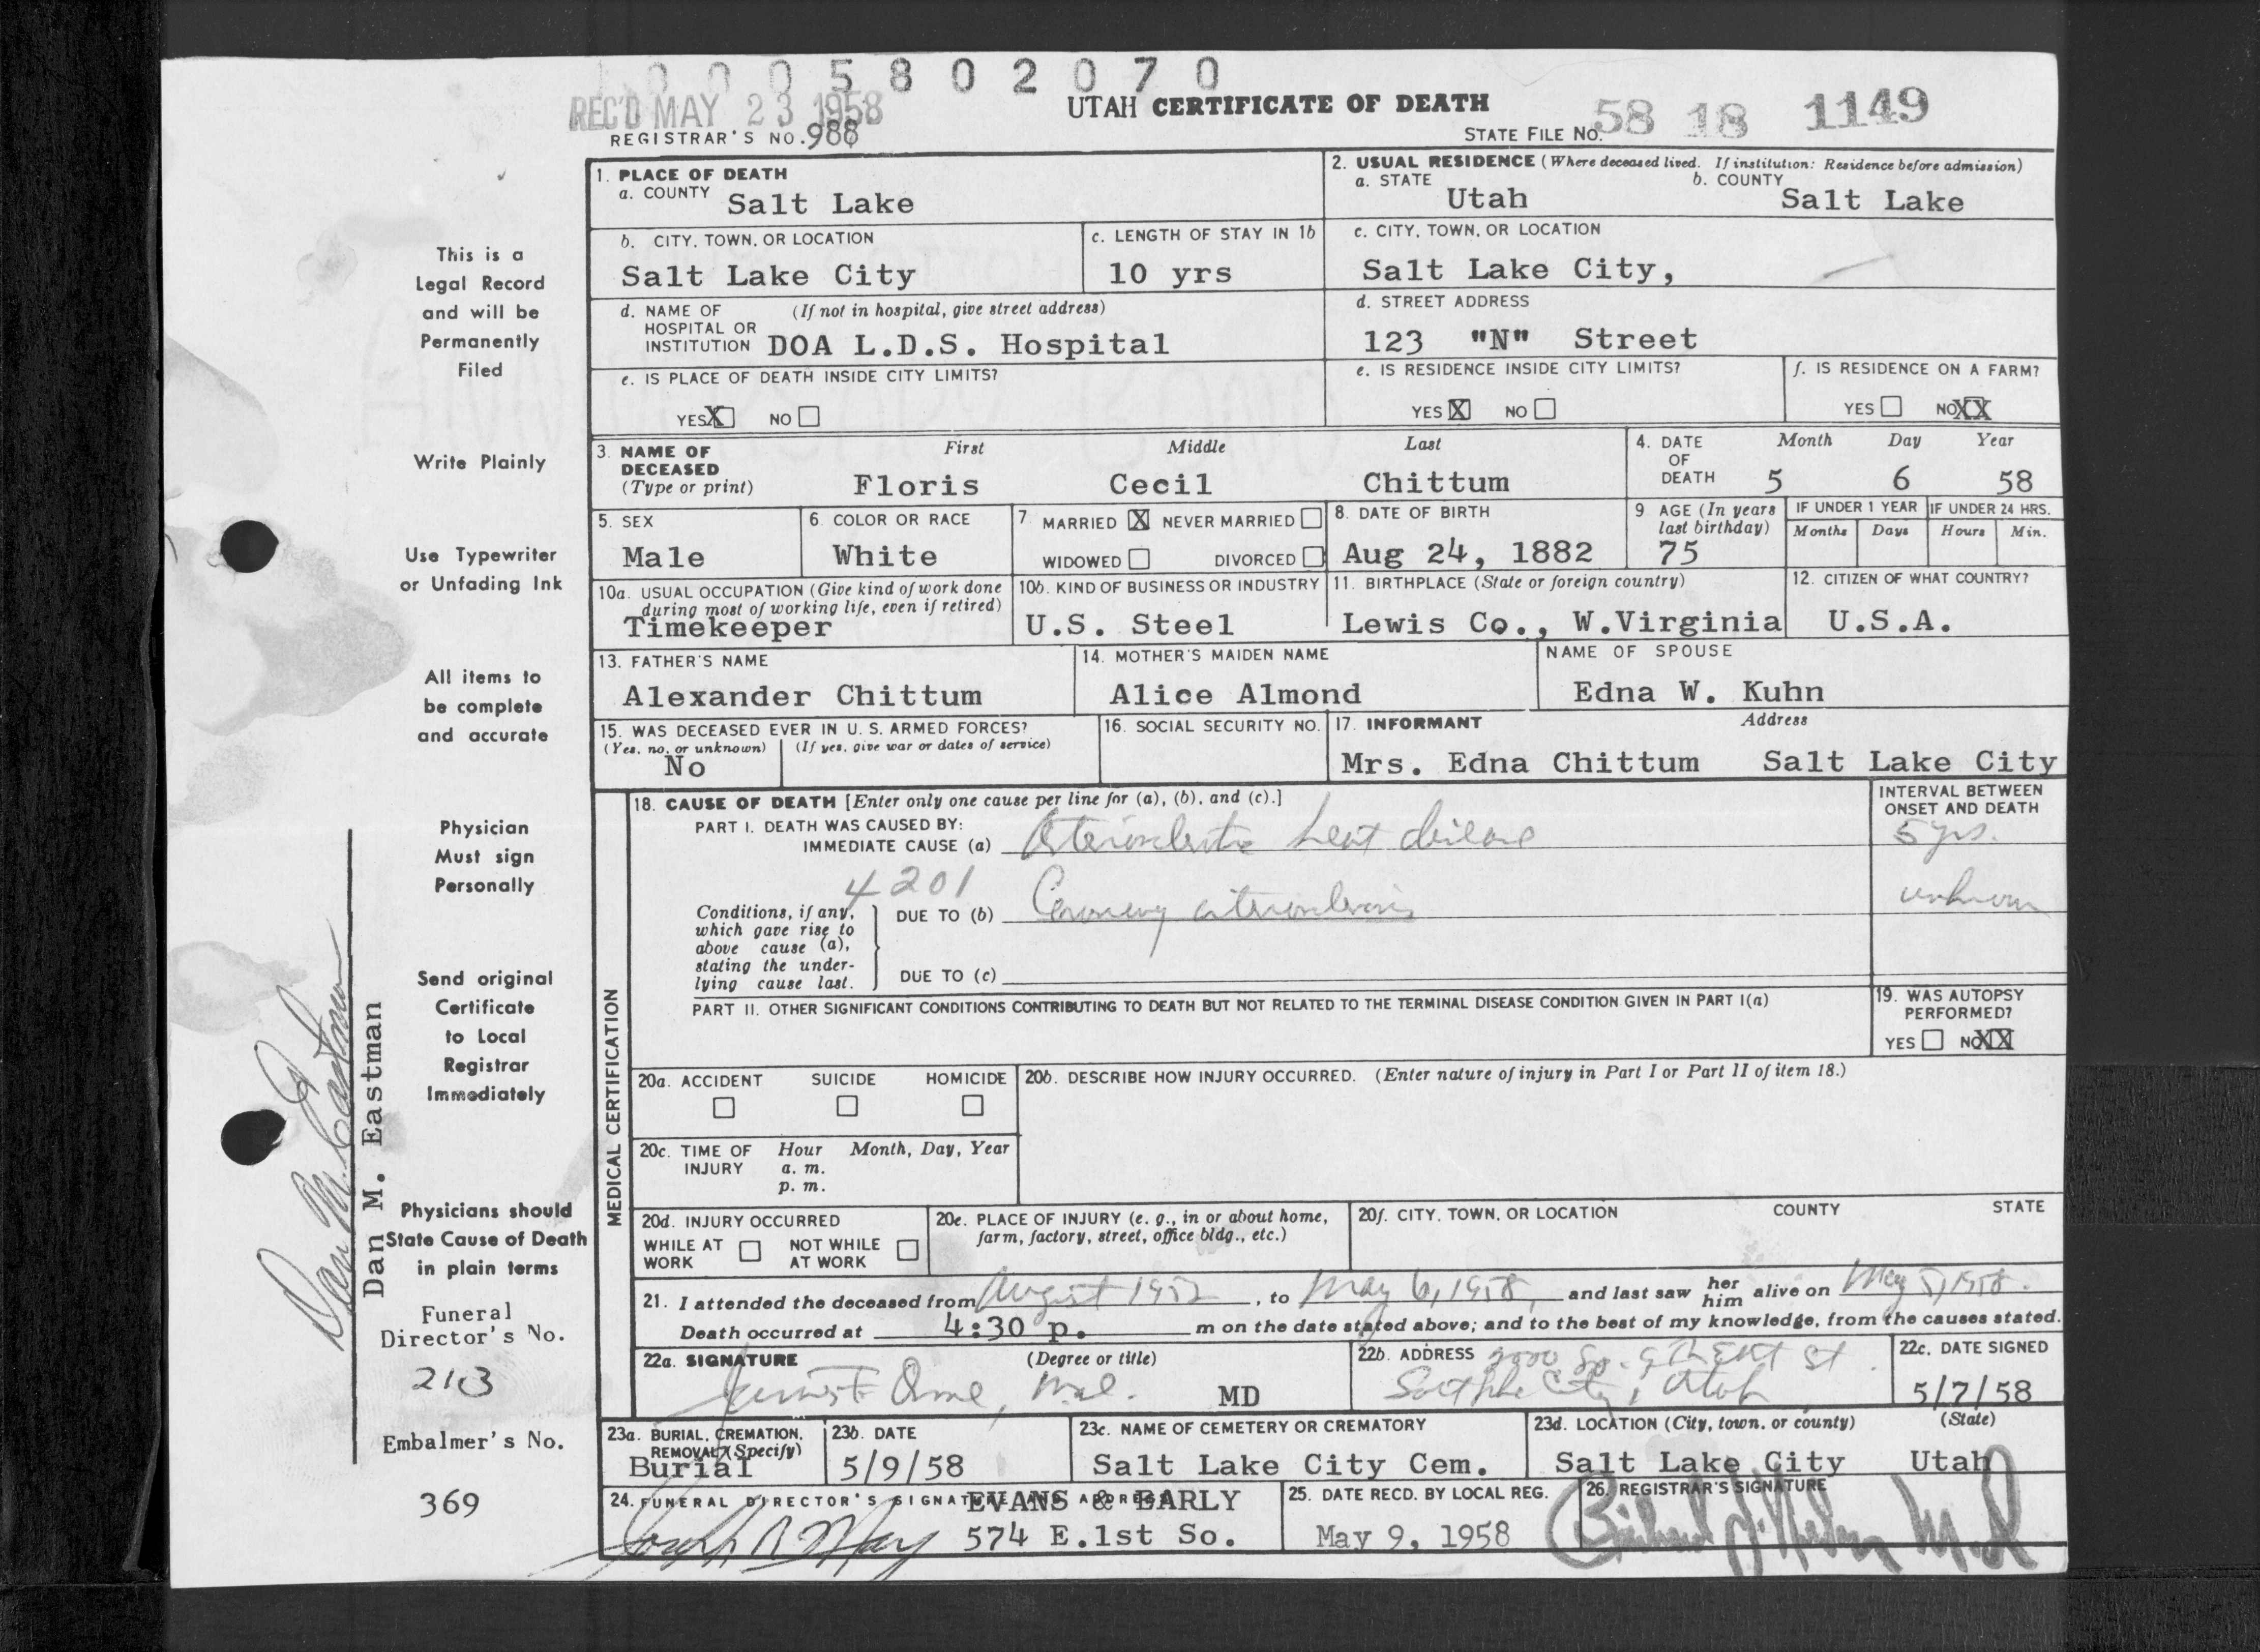 0005802070
REC'D MAY 23 1958
UTAH CERTIFICATE OF DEATH
REGISTRAR'S NO. 988
STATE FILE NO. 58 18 1149
This is a
Legal Record
and will be
Permanently
Filed
Write Plainly
Use Typewriter
or Unfading Ink
All items to
be complete
and accurate
Physician
Must sign
Personally
Send original
Certificate
to Local
Registrar
Immediately
Physicians should
State Cause of Death
in plain terms
Funeral
Director's No.
213
Embalmer's No.
369
Dan M. Eastman
Dan M. Eastman
1. PLACE OF DEATH
a. COUNTY Salt Lake
2. USUAL RESIDENCE (Where deceased lived. If institution: Residence before admission)
a. STATE Utah b. COUNTY Salt Lake
b. CITY, TOWN, OR LOCATION Salt Lake City
c. LENGTH OF STAY IN 1b 10 yrs
c. CITY, TOWN, OR LOCATION Salt Lake City,
d. NAME OF HOSPITAL OR INSTITUTION (If not in hospital, give street address) DOA L.D.S. Hospital
d. STREET ADDRESS 123 "N" Street
e. IS PLACE OF DEATH INSIDE CITY LIMITS?
YES X NO
e. IS RESIDENCE INSIDE CITY LIMITS?
YES X NO
f. IS RESIDENCE ON A FARM?
YES NO XX
3. NAME OF DECEASED (Type or print)
First Middle Last
Floris Cecil Chittum
4. DATE OF DEATH Month Day Year
5 6 58
5. SEX Male
6. COLOR OR RACE White
7. MARRIED X NEVER MARRIED
WIDOWED DIVORCED
8. DATE OF BIRTH Aug 24, 1882
9 AGE (In years last birthday) 75
IF UNDER 1 YEAR Months Days
IF UNDER 24 HRS. Hours Min.
10a. USUAL OCCUPATION (Give kind of work done during most of working life, even if retired)
Timekeeper
10b. KIND OF BUSINESS OR INDUSTRY U.S. Steel
11. BIRTHPLACE (State or foreign country) Lewis Co., W.Virginia
12. CITIZEN OF WHAT COUNTRY? U.S.A.
13. FATHER'S NAME Alexander Chittum
14. MOTHER'S MAIDEN NAME Alice Almond
NAME OF SPOUSE Edna W. Kuhn
15. WAS DECEASED EVER IN U. S. ARMED FORCES?
(Yes, no, or unknown) (If yes, give war or dates of service)
No
16. SOCIAL SECURITY NO.
17. INFORMANT Address
Mrs. Edna Chittum Salt Lake City
MEDICAL CERTIFICATION
18. CAUSE OF DEATH [Enter only one cause per line for (a), (b), and (c).]
INTERVAL BETWEEN ONSET AND DEATH
PART I. DEATH WAS CAUSED BY:
IMMEDIATE CAUSE (a) Arteriosclerotic heart disease 5 yrs.
4201
Conditions, if any, which gave rise to above cause (a), stating the underlying cause last.
DUE TO (b) Coronary arteriosclerosis unknown
DUE TO (c)
PART II. OTHER SIGNIFICANT CONDITIONS CONTRIBUTING TO DEATH BUT NOT RELATED TO THE TERMINAL DISEASE CONDITION GIVEN IN PART I(a)
19. WAS AUTOPSY PERFORMED?
YES NO XX
20a. ACCIDENT SUICIDE HOMICIDE
20b. DESCRIBE HOW INJURY OCCURRED. (Enter nature of injury in Part I or Part II of item 18.)
20c. TIME OF INJURY Hour Month, Day, Year
a. m.
p. m.
20d. INJURY OCCURRED
WHILE AT WORK NOT WHILE AT WORK
20e. PLACE OF INJURY (e. g., in or about home, farm, factory, street, office bldg., etc.)
20f. CITY, TOWN, OR LOCATION COUNTY STATE
21. I attended the deceased from August 1952, to May 6, 1958, and last saw her him alive on May 5, 1958.
Death occurred at 4:30 p. m on the date stated above; and to the best of my knowledge, from the causes stated.
22a. SIGNATURE (Degree or title)
MD
22b. ADDRESS 2000 So. 9th East St.
Salt Lake City, Utah
22c. DATE SIGNED 5/7/58
23a. BURIAL, CREMATION, REMOVAL (Specify) Burial
23b. DATE 5/9/58
23c. NAME OF CEMETERY OR CREMATORY Salt Lake City Cem.
23d. LOCATION (City, town, or county) (State)
Salt Lake City Utah
24. FUNERAL DIRECTOR'S SIGNATURE AND ADDRESS EVANS & EARLY
574 E.1st So.
25. DATE RECD. BY LOCAL REG. May 9, 1958
26. REGISTRAR'S SIGNATURE